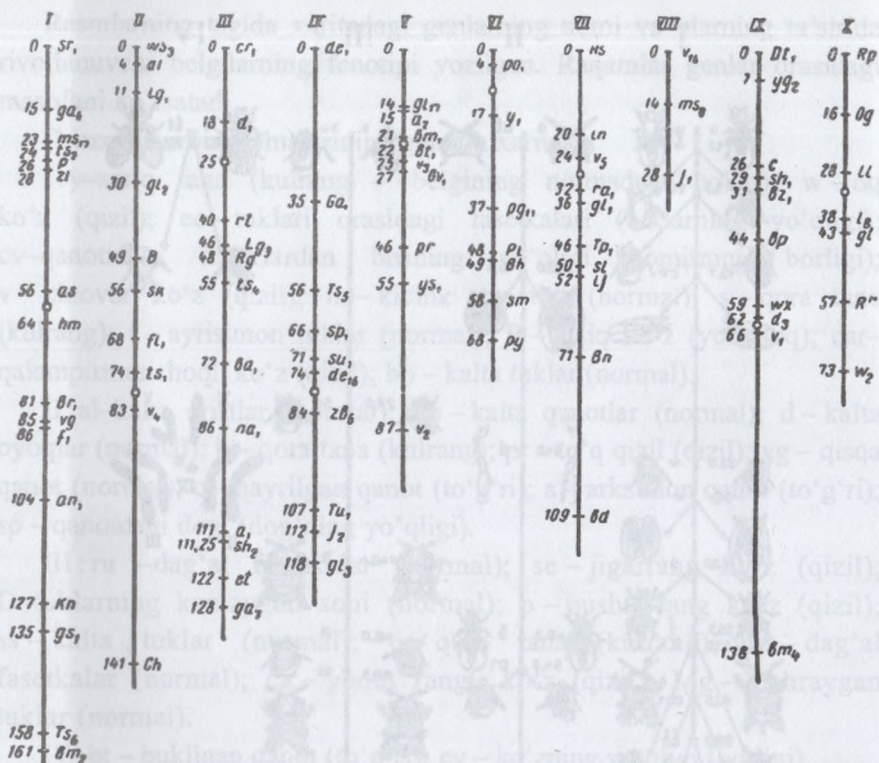 I II III IV V VI VII VIII IX X
I
0 sr₁
15 ga₆
23 ms₁₇
24 ts₂
26 P
28 zl
56 as
64 hm
81 Br
85 vg
86 f₁
104 an₁
127 Kn
135 gs₁
158 Ts₆
161 Bm₂
II
0 ws₃
al
11 lg₁
30 gl₂
49 B
56
68 fl₁
74 ts₁
83 v₄
141 Ch
III
0 cr₁
18 d₁
25
40 rt
46 Lg₃
48 Rg
55 ts₄
72 ba₁
86 na₁
111 a₁
111,25 sh₂
122 et
128 ga₃
IV
0 de₁
35 Ga₁
56 Ts₅
66 sp₁
71 su₁
74 de₁₆
84 zb₆
107 Tu₁
112 J₂
118 gl₃
V
0
14 gl₁₇
15 a₂
21 Bm₁
22 Bt₁
27 Bv₁
46 pr
55 ys₁
87 v₂
VI
0
4 po₁
17 y₁
37 pg₁₁
48 Pl
49 Bh
58 sm
68 py
VII
0 Hs
20 in
24 v₅
32 ra₁
36 gl₁
46 Tp₁
50 sl
52 ij
71 Bn
109 Bd
VIII
0 v₁₆
14 ms₈
28 J₁
IX
0 Dt₁
7 yg₂
26 C
29 sh₁
31 Bz₁
44 Bp
59 wx
62 d₃
66 v₁
138 Bm₄
X
0 Rp
16 Og
28 li
38
43 gl
57 R
73 w₂